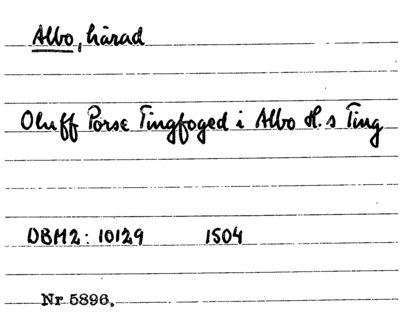 Albo, härad
Oluff Porse Tingfoged i Albo H.s Ting
DBM2: 10129 1504
Nr 5896.